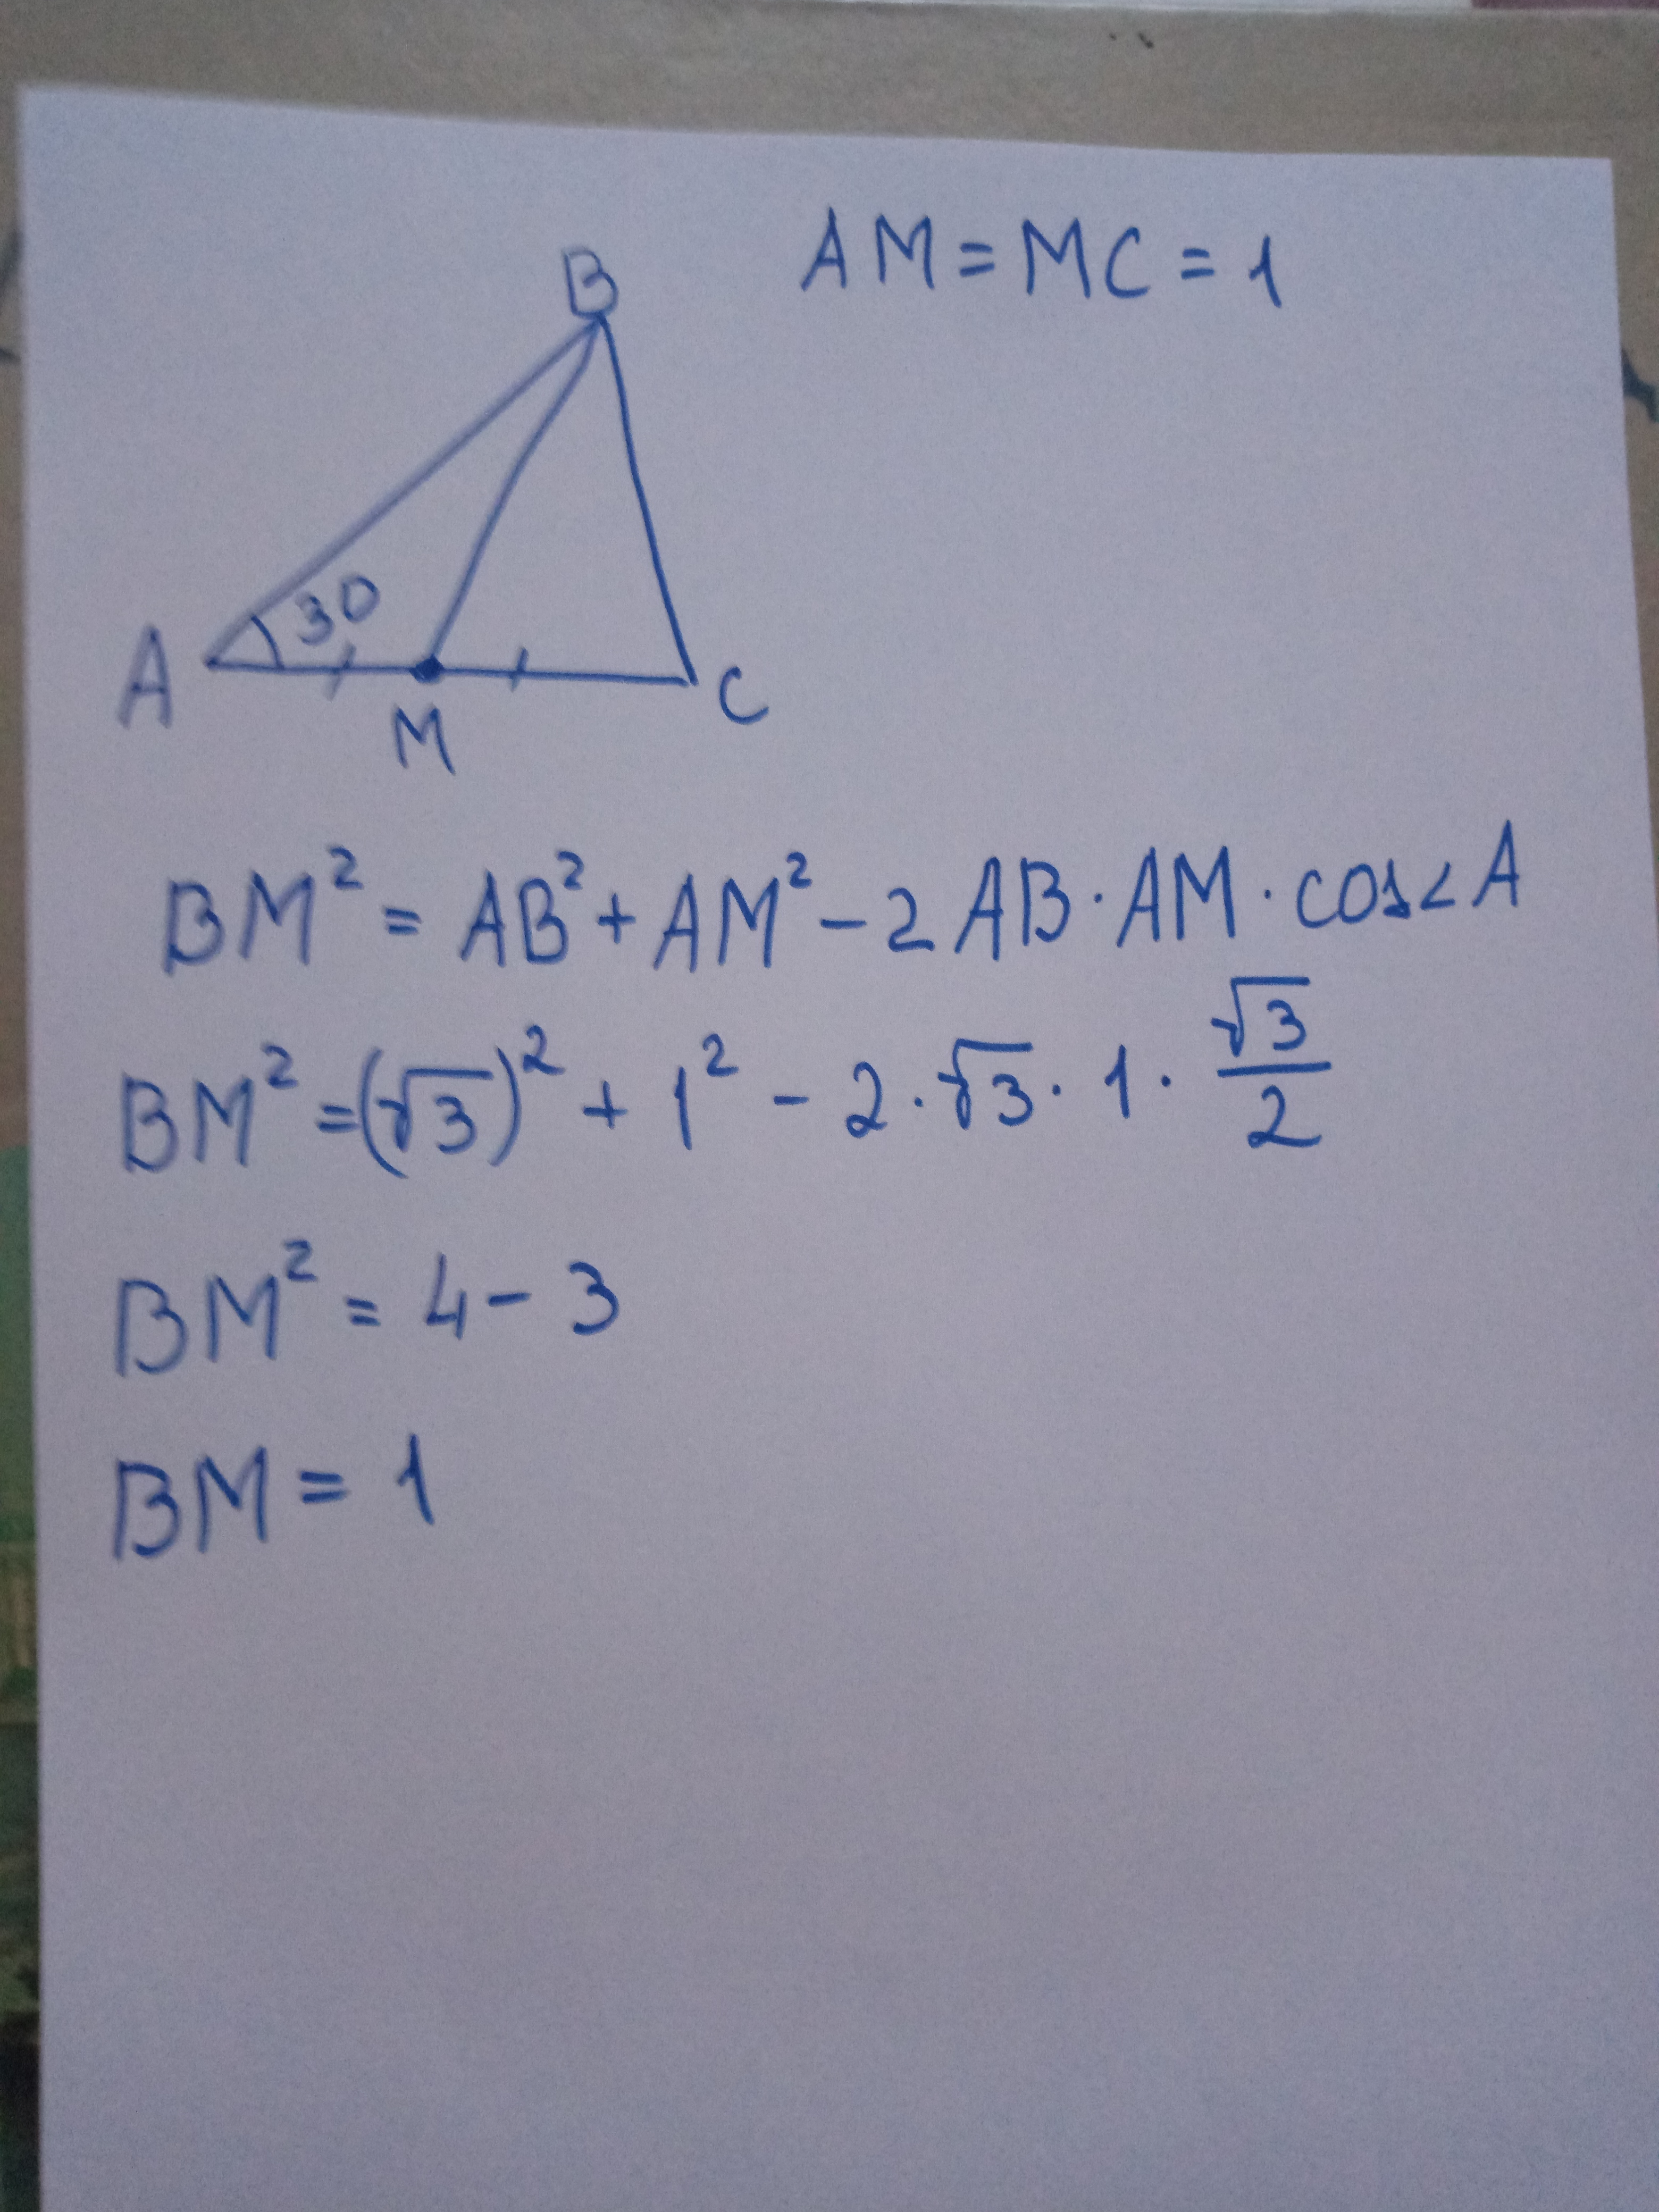 AM = MC = 1
B
30
A
M
C
BM² = AB² + AM² - 2 AB · AM · cos∠A
BM² = (√3)² + 1² - 2 · √3 · 1 · √3/2
BM² = 4 - 3
BM = 1